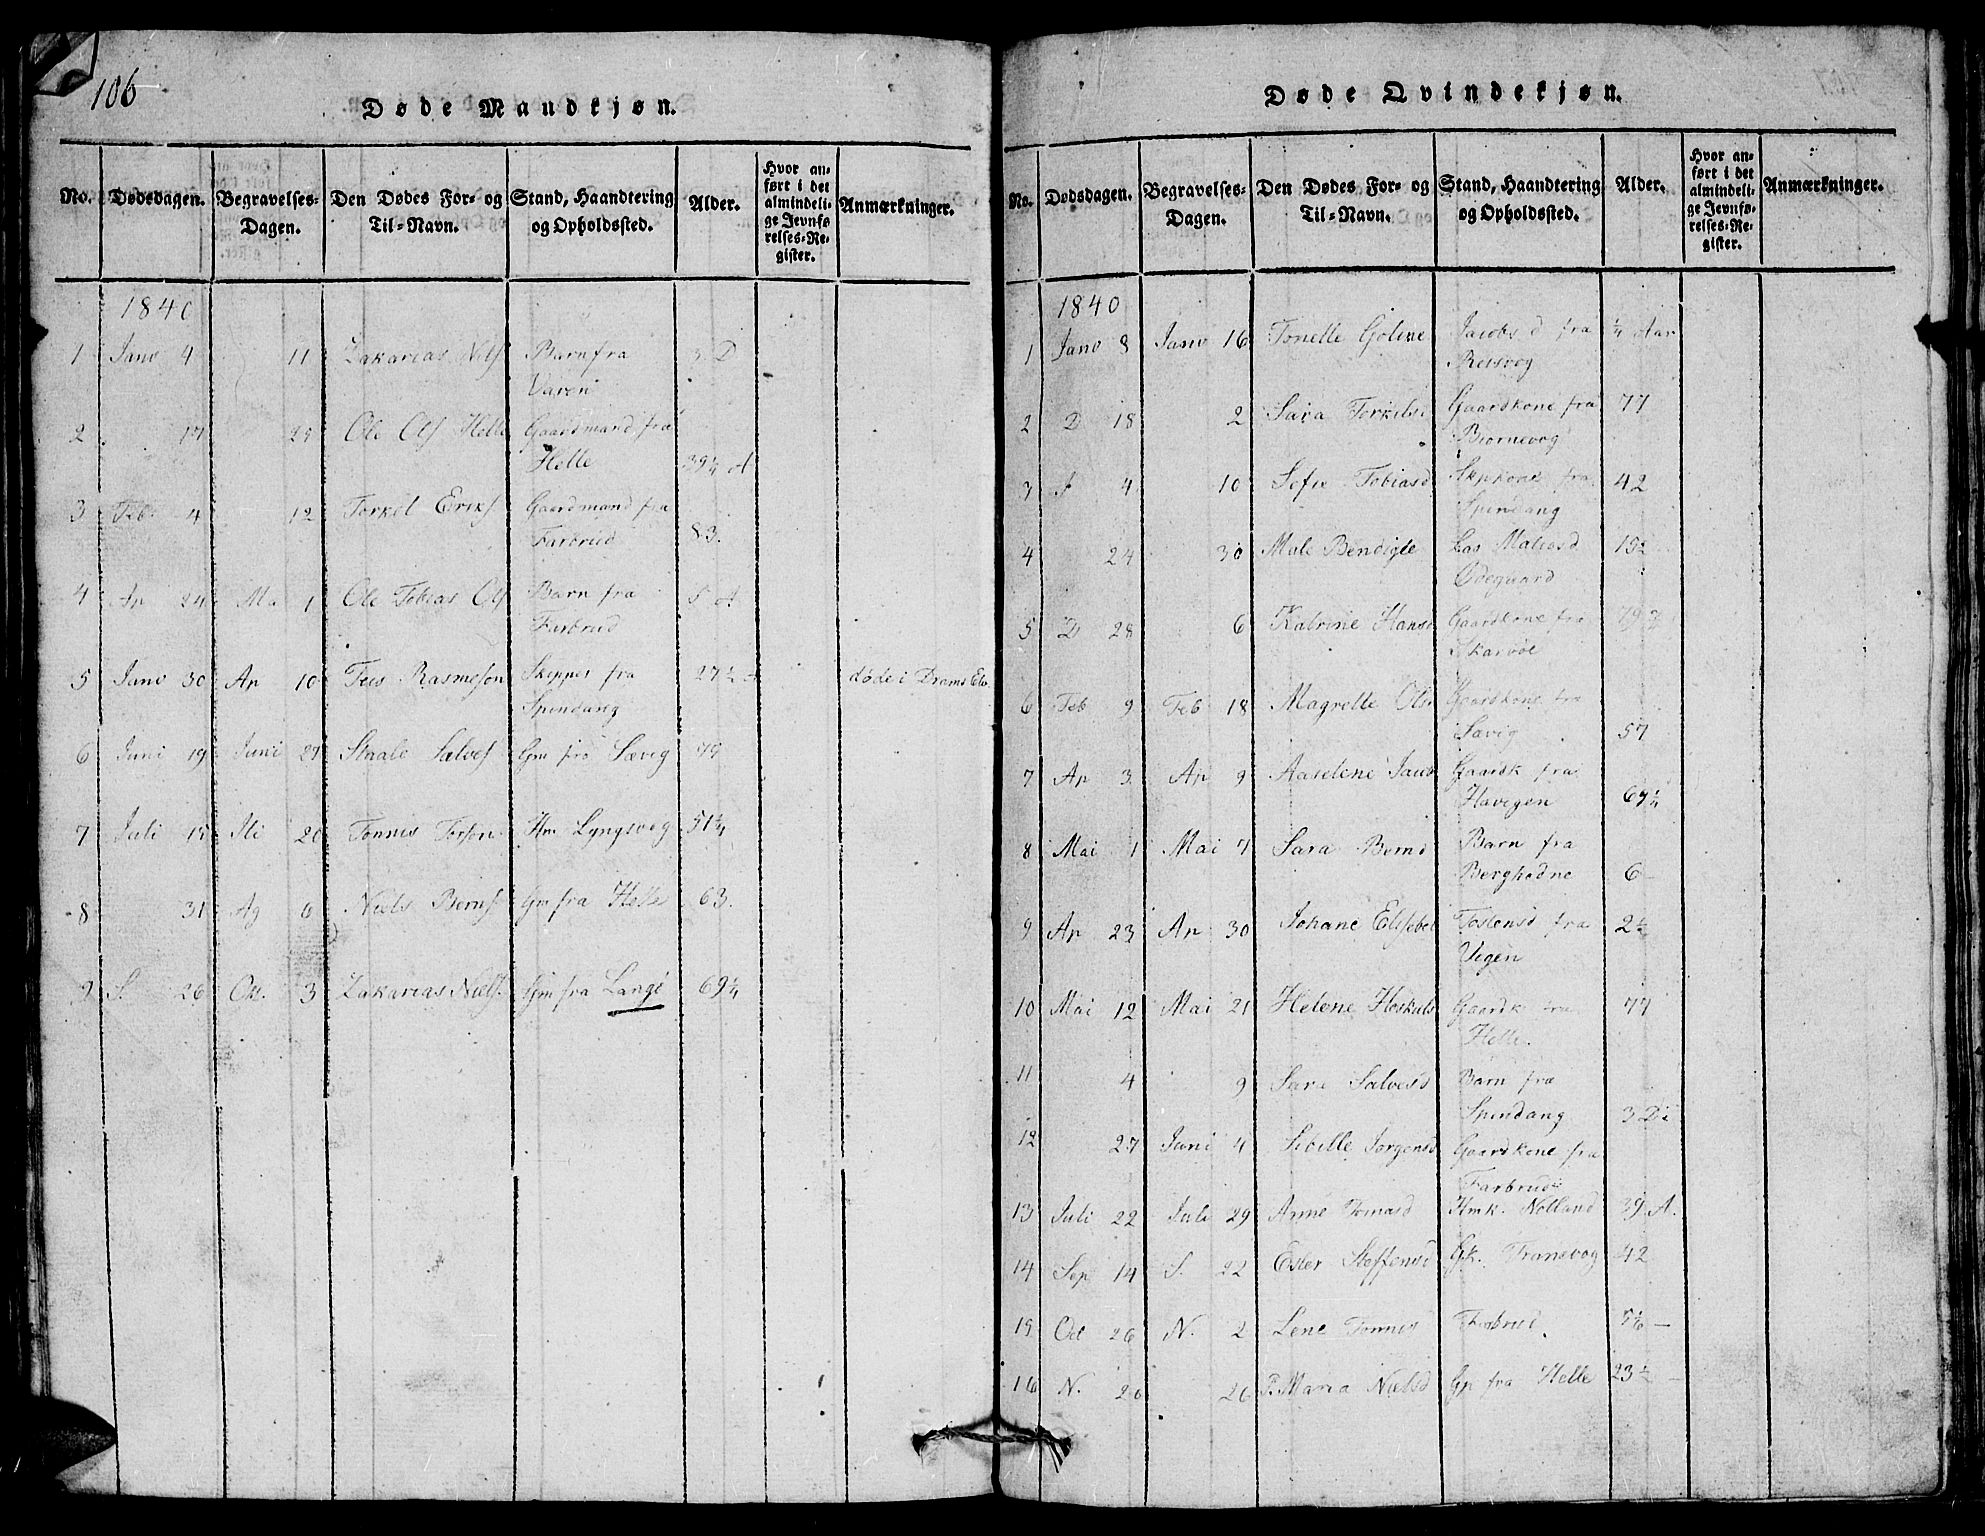 106
Døde Mandkjøn.
No. Dødsdagen. Begravelses-Dagen. Den Dødes For- og Til-Navn. Stand, Haandtering og Opholdssted. Alder. Hvor anført i det almindelige Jevnførelses-Register. Anmærkninger.
1840
1 Janv 4 11 Zakarias Nils Barn fra 3 D
Varen
2 17 Ole Ols Helle Gaardmand fra
Helle 39¼ A
3 Feb. 4 12 Torkel Eriks Gaardmand fra
Farbrud 83.
4 Ap 24 Ma 1 Ole Tobias Ols Barn fra 5 A
Farbrud
5 Janv 30 Ap 10 Teis Rasmeson Skipper fra 27½ døde i Drams Elv
Spindang
6 Juni 19 Juni 27 Staale Salves Gm fra Sævig 79
7 Juli 15 Jli 20 Tønnis Torson Hm Lyngsvog 51¼
8 31 Ag 6 Niels Berns Gm fra Helle 63.
9 S. 26 Okt. 3 Zakarias Niels. Gm fra Lange 69¼
Døde Qvindekjøn.
No. Dødsdagen. Begravelses-Dagen. Den Dødes For- og Til-Navn. Stand, Haandtering og Opholdssted. Alder. Hvor anført i det almindelige Jevnførelses-Register. Anmærkninger.
1840
1 Janv 8 Janv 16 Tonelle Goline Jacobs d fra ¼ Aar
Reisvog
2 D 18 2 Sara Torkils Gaardkone fra 77
Biornevog
3 F 4 10 Sofie Tobiasd Skpkone fra 42
Spindang
4 24 30 Male Bendigte Matiasd 15½
Ødegaard
5 D 28 6 Katrine Hansd Gaardkone fra 79¾
Skarvøe
6 Feb 9 Feb 18 Magrette Ols Gaardkone fra
Sævig 57
7 Ap 3 Ap 9 Aaselene Jacob Gaardk fra
Havigen 67¼
8 Mai 1 Mai 7 Sara Bernd Barn fra
Berghedne 6
9 Ap 23 Ap 30 Johane Elisebet Tostensd fra 2½
Vegen
10 Mai 12 Mai 21 Helene Hoskuls Gaardk fra 77
Helle.
11 4 9 Sara Salvesd Barn fra
Spindang 3 D
12 27 Juni 4 Sibille Jørgensd Gaardkone fra
Farbrud
13 Juli 22 Juli 29 Anne Tomasd Hmk. Nolland 39 A.
14 Sep 14 S. 22 Ester Steffensd Gk. Tranevog 42
15 Oct 26 N. 2 Lene Tønnis Farbrud. 5
16 N. 20 26 Maria Nielsd Gp fra Helle 23½